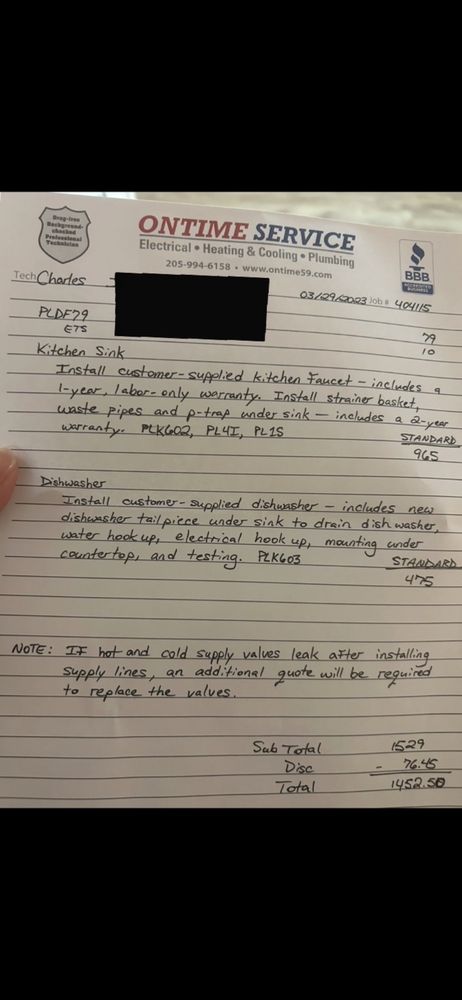 Drug-free
Background-
checked
Professional
Technician
ONTIME SERVICE
Electrical • Heating & Cooling • Plumbing
205-994-6158 • www.ontime59.com
BBB
ACCREDITED
BUSINESS
Tech Charles
03/29/2023 Job # 404115
PLDF79 79
ETS 10
Kitchen Sink
Install customer-supplied kitchen faucet - includes a
1-year, labor-only warranty. Install strainer basket,
waste pipes and p-trap under sink - includes a 2-year
warranty. PLK602, PL4I, PL1S STANDARD
965
Dishwasher
Install customer-supplied dishwasher - includes new
dishwasher tailpiece under sink to drain dish washer,
water hook up, electrical hook up, mounting under
countertop, and testing. PLK603 STANDARD
475
NOTE: IF hot and cold supply valves leak after installing
supply lines, an additional quote will be required
to replace the valves.
Sub Total 1529
Disc - 76.45
Total 1452.50